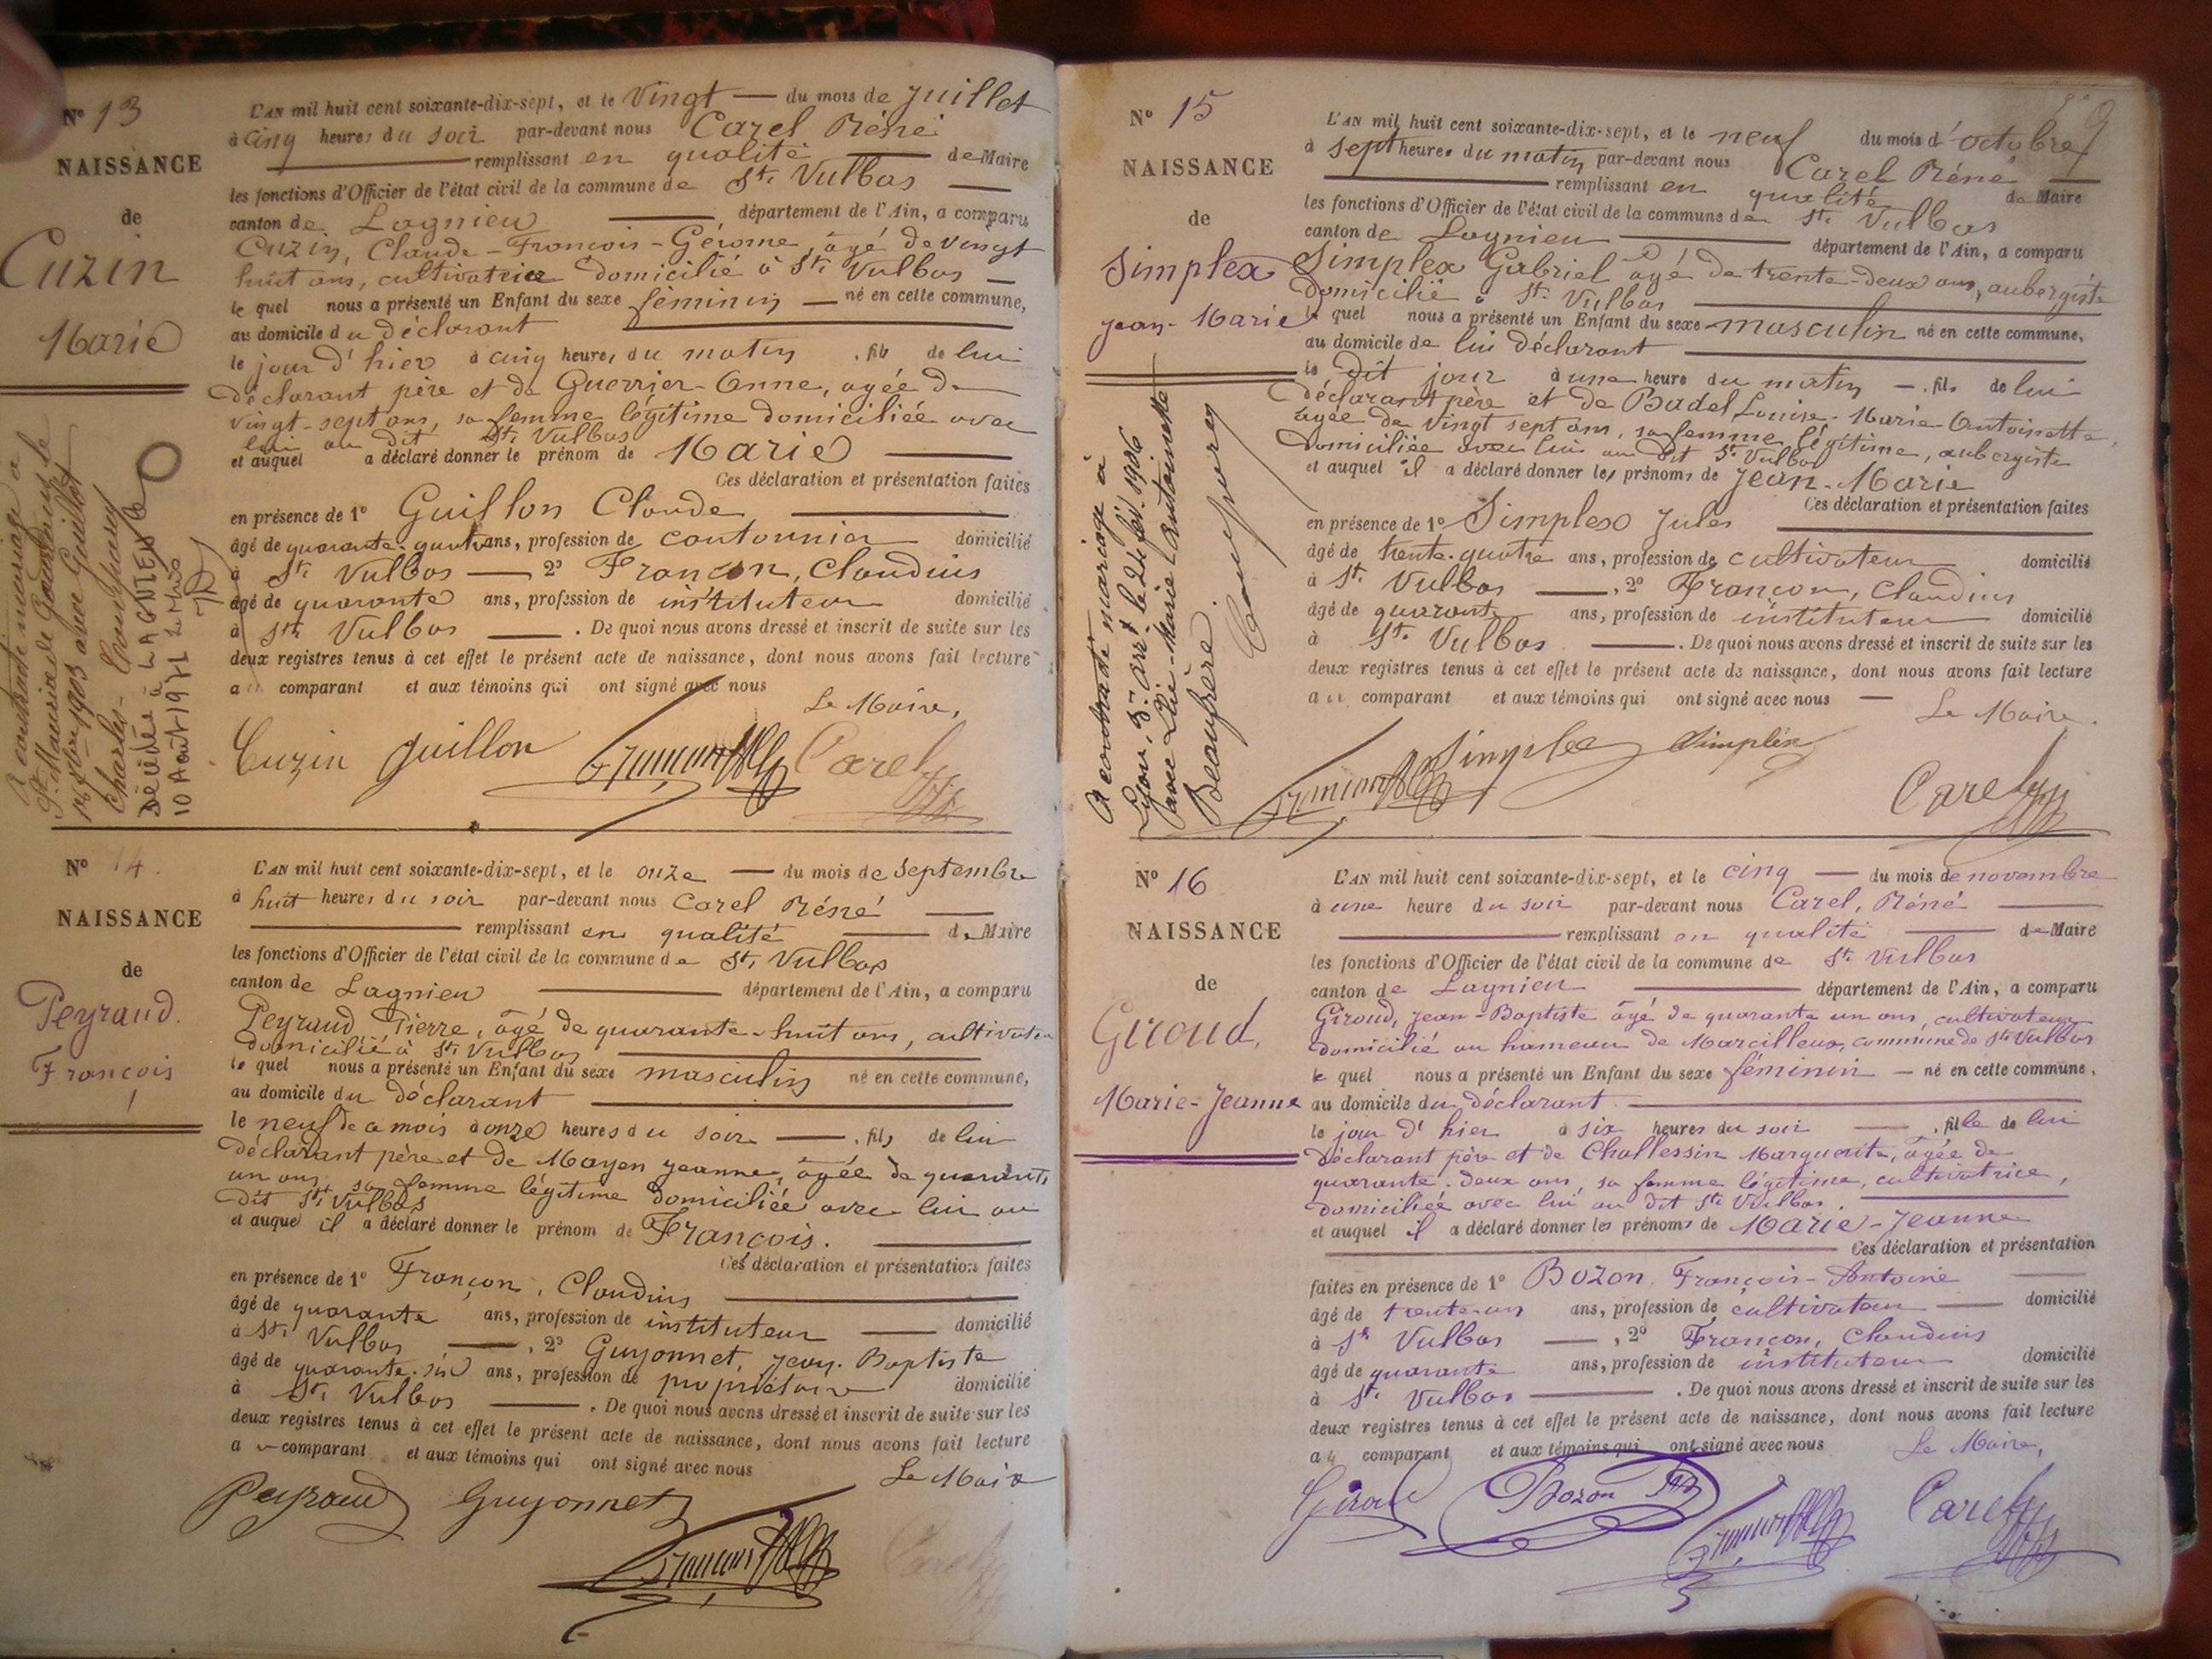 N° 13
NAISSANCE
de
Cuzin
Marie
L'AN mil huit cent soixante-dix-sept, et le Vingt — du mois de Juillet
à Cinq heures du soir par-devant nous Carel Réné
remplissant en qualité — de Maire
les fonctions d'Officier de l'état civil de la commune de St. Vulbas
canton de Lagnieu — département de l'Ain, a comparu
Cuzin, Claude-François-Gérome, âgé de vingt
huit ans, domicilié à St. Vulbas —
le quel nous a présenté un Enfant du sexe féminin — né en cette commune,
au domicile du déclarant
le jour d'hier à cinq heures du matin, de lui
déclarant père et de Guerrier-Anne, agée de
vingt-sept ans, sa femme légitime domiciliée avec
lui au dit St. Vulbas
et auquel a déclaré donner le prénom de Marie
Ces déclaration et présentation faites
en présence de 1° Guillon Claude
âgé de quarante-quatre ans, profession de cantonnier domicilié
à St. Vulbas — 2° Françon, Claudius
âgé de quarante ans, profession de instituteur domicilié
à St. Vulbas — . De quoi nous avons dressé et inscrit de suite sur les
deux registres tenus à cet effet le présent acte de naissance, dont nous avons fait lecture
au comparant et aux témoins qui ont signé avec nous
Le Maire,
Cuzin Guillon Françon Carel
A contracté mariage à
St. Maurice de Gourdans le
1903 avec Guillot
Charles-
Décédée à LAGNIEU le
10 Août 1971 Le Maire
N° 14.
NAISSANCE
de
Peyraud.
François
L'AN mil huit cent soixante-dix-sept, et le onze — du mois de Septembre
à huit heures du soir par-devant nous Carel Réné
remplissant en qualité — de Maire
les fonctions d'Officier de l'état civil de la commune de St. Vulbas
canton de Lagnieu — département de l'Ain, a comparu
Peyraud Pierre, âgé de quarante-huit ans, cultivateur
domicilié à St. Vulbas
le quel nous a présenté un Enfant du sexe masculin né en cette commune,
au domicile du déclarant
le neuf de ce mois à onze heures du soir — , fils de lui
déclarant père et de Mayen Jeanne, âgée de quarante
un ans, sa femme légitime domiciliée avec lui au
dit St. Vulbas
et auquel il a déclaré donner le prénom de François.
Ces déclaration et présentation faites
en présence de 1° Françon, Claudius
âgé de quarante ans, profession de instituteur — domicilié
à St. Vulbas — , 2° Guyonnet, Jean-Baptiste
âgé de quarante-six ans, profession de propriétaire domicilié
à St. Vulbas — . De quoi nous avons dressé et inscrit de suite sur les
deux registres tenus à cet effet le présent acte de naissance, dont nous avons fait lecture
au comparant et aux témoins qui ont signé avec nous
Le Maire
Peyraud Guyonnet
Françon Carel
9
N° 15
NAISSANCE
de
Simplex
Jean-Marie
L'AN mil huit cent soixante-dix-sept, et le neuf du mois d'octobre
à sept heures du matin par-devant nous Carel Réné —
remplissant en qualité de Maire
les fonctions d'Officier de l'état civil de la commune de St. Vulbas
canton de Lagnieu — département de l'Ain, a comparu
Simplex Gabriel âgé de trente-deux ans, aubergiste
domicilié à St. Vulbas
le quel nous a présenté un Enfant du sexe masculin né en cette commune,
au domicile de lui déclarant
le dit jour à une heure du matin — , fils de lui
déclarant père et de Badel Louise-Marie-Antoinette,
agée de vingt sept ans, sa femme légitime, aubergiste
domiciliée avec lui au dit St. Vulbas
et auquel il a déclaré donner les prénoms de Jean-Marie
Ces déclaration et présentation faites
en présence de 1° Simplex Jules
âgé de trente-quatre ans, profession de cultivateur domicilié
à St. Vulbas — , 2° Françon, Claudius
âgé de quarante ans, profession de instituteur domicilié
à St. Vulbas — . De quoi nous avons dressé et inscrit de suite sur les
deux registres tenus à cet effet le présent acte de naissance, dont nous avons fait lecture
au comparant et aux témoins qui ont signé avec nous —
Le Maire.
Françon Simplex Simplex Carel
A contracté mariage à
Lyon, 3e arrt le 1906
avec Marie Antoinette
Beaufrère.
N° 16
NAISSANCE
de
Giroud,
Marie-Jeanne
L'AN mil huit cent soixante-dix-sept, et le cinq — du mois de novembre
à une heure du soir par-devant nous Carel, Réné
remplissant en qualité — de Maire
les fonctions d'Officier de l'état civil de la commune de St. Vulbas
canton de Lagnieu — département de l'Ain, a comparu
Giroud, Jean-Baptiste âgé de quarante un ans, cultivateur
domicilié au hameau de Marcilleux, commune de St. Vulbas
le quel nous a présenté un Enfant du sexe féminin — né en cette commune,
au domicile du déclarant
le jour d'hier à six heures du soir — , fille de lui
déclarant père et de Challessin Marguerite, âgée de
quarante-deux ans, sa femme légitime, cultivatrice,
domiciliée avec lui au dit St. Vulbas.
et auquel il a déclaré donner les prénoms de Marie-Jeanne
Ces déclaration et présentation
faites en présence de 1° Bozon, François-Antoine
âgé de ans, profession de cultivateur — domicilié
à St. Vulbas — , 2° Françon, Claudius
âgé de quarante ans, profession de instituteur domicilié
à St. Vulbas — . De quoi nous avons dressé et inscrit de suite sur les
deux registres tenus à cet effet le présent acte de naissance, dont nous avons fait lecture
au comparant et aux témoins qui ont signé avec nous
Le Maire,
Giroud Bozon Françon Carel